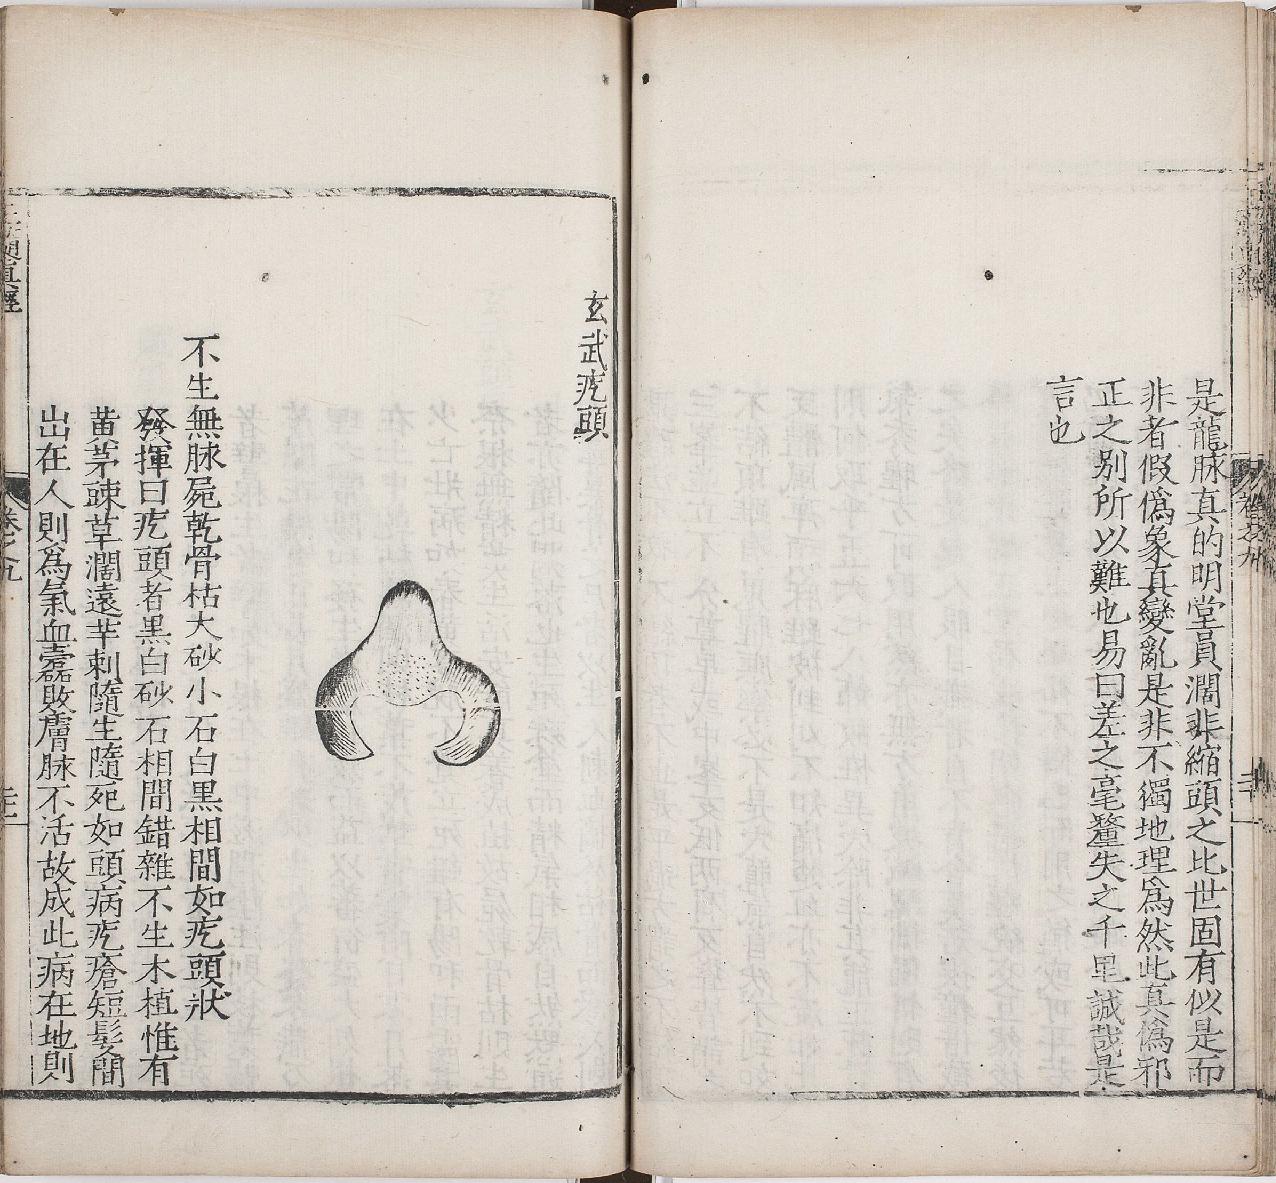 是龍脉真的明堂員濶非縮頭之比世固有似是而
非者假僞象真變亂是非不獨地理爲然此真僞邪
正之别所以難也易曰差之毫釐失之千里誠哉是
言也
玄武疙頭
不生無脉屍乾骨枯大砂小石白黒相間如疙頭状
發揮曰疙頭者黒白砂石相間錯雜不生木植惟有
黄茅踈草濶遠芊刺隨生隨死如頭病疙瘡短髮間
出在人則爲氣血蠹敗膚脉不活故成此病在地則
卷之九